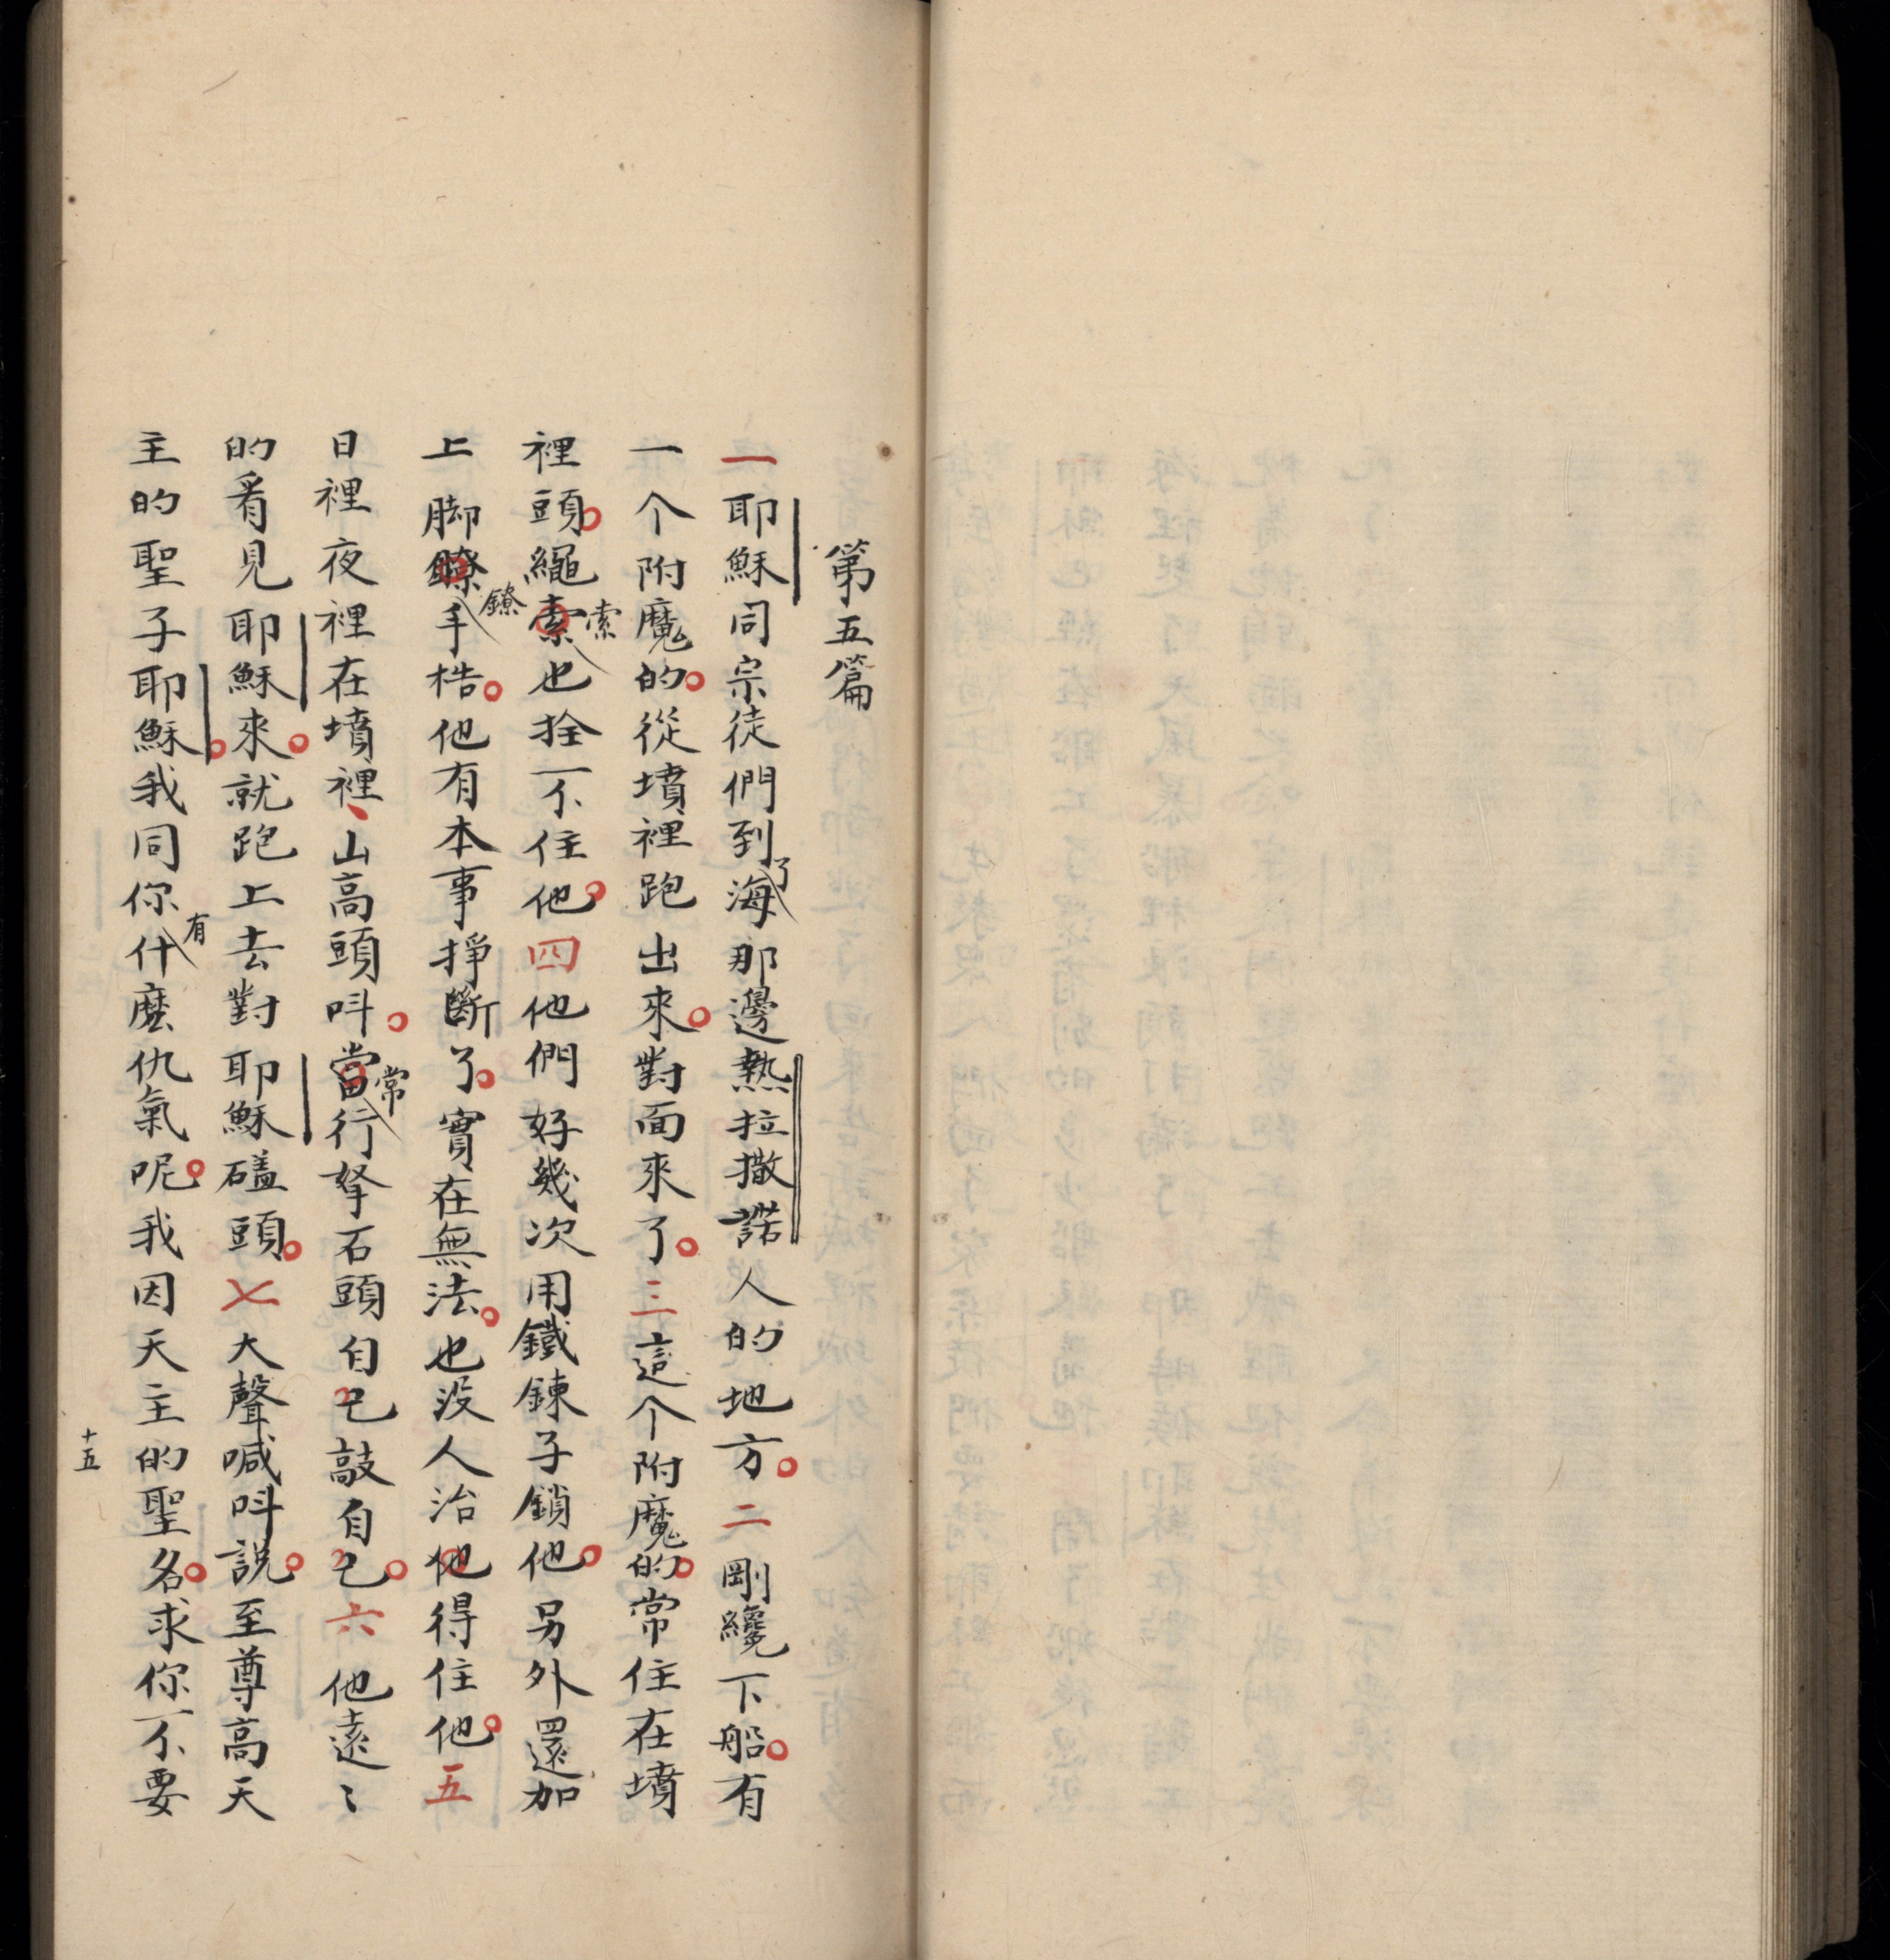 第五篇
一耶穌同宗徒們到了海那邊熱拉撒諾人的地方。二剛纔下船。有
一个附魔的。從墳裡跑出來。對面來了。三這个附魔的。常住在墳
裡頭。繩索索也拴不住他。四他們好幾次用鐵鍊子鎖他。另外還加
上脚鐐鐐手梏。他有本事掙斷了。實在無法。也没人治他得住他。五
日裡夜裡在墳裡、山高頭呌。當常行拏石頭自己敲自己。六他遠〻
的看見耶穌來。就跑上去對耶穌磕頭。七大聲喊呌說。至尊高天
主的聖子耶穌。我同你有什麽仇氣呢。我因天主的聖名。求你不要
十五